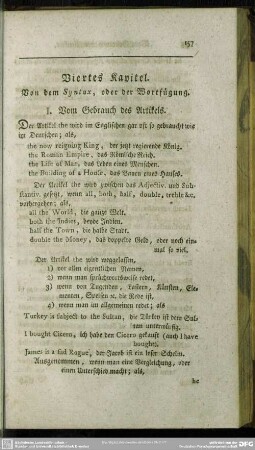 157
Viertes Kapitel.
Von dem Syntax, oder der Wortfügung.
I. Vom Gebrauch des Artikels.
Der Artikel the wird im Englischen gar oft so gebraucht wie
im Deutschen; als,
the now reigning King, der jetzt regierende König.
the Roman Empire, das Römische Reich.
the Life of Man, das Leben eines Menschen.
the Building of a House, das Bauen eines Hauses.
Der Artikel the wird zwischen das Adjectiv. und Sub-
stantiv. gesetzt, wenn all, both, half, double, treble &c.
vorhergehen; als,
all the World, die ganze Welt.
both the Indies, beyde Indien.
half the Town, die halbe Stadt.
double the Money, das doppelte Geld, oder noch ein-
mal so viel.
Der Artikel the wird weggelassen,
1) vor allen eigentlichen Namen,
2) wenn man sprüchwortsweise redet,
3) wenn von Tugenden, Lastern, Künsten, Ele-
menten, Speisen &c. die Rede ist.
4) wenn man im allgemeinen redet; als
Turkey is subject to the Sultan, die Türkey ist dem Sul-
tan unterwürfig.
I bought Cicero, ich habe den Cicero gekauft (auch I have
bought).
James is a sad Rogue, der Jacob ist ein loser Schelm.
Ausgenommen, wenn man eine Vergleichung, oder
einen Unterschied macht; als,
he